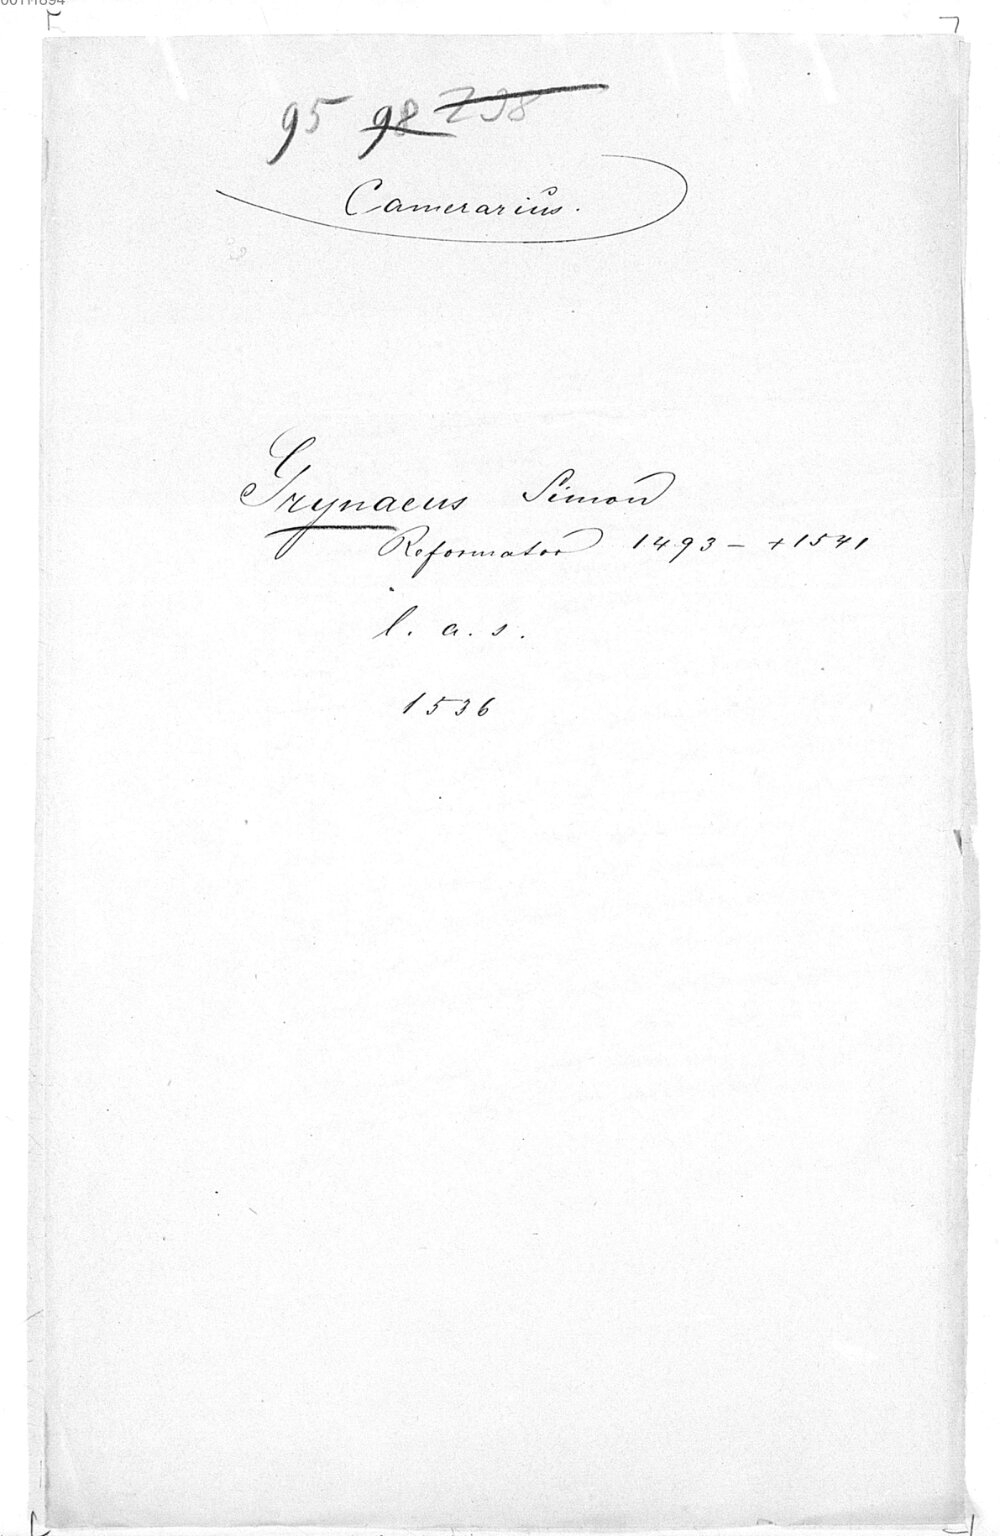 95 98 Z 98
Camerarius.
Grynaeus Simon
Reformator 1493 – +1541
l. a. s.
1536